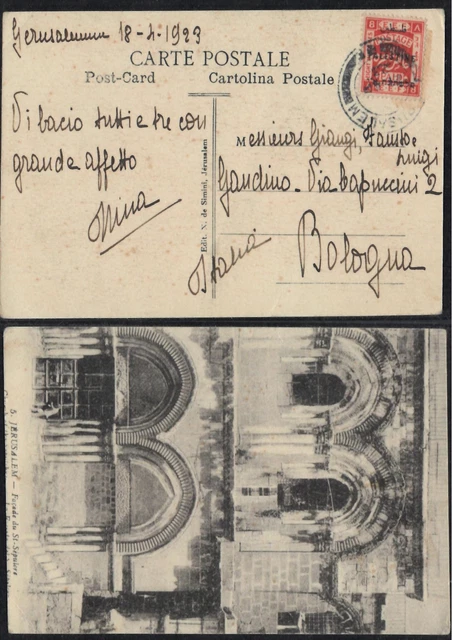 Gerusalemme 18-4-1923
CARTE POSTALE
Post-Card Cartolina Postale
Vi bacio tutti e tre con
grande affetto
Nina
Edit. N. de Simini, Jérusalem
Messieurs Giangi,
Luigi
Gandino - Via Capuccini 2
Bologna
Italia
8 A
E.E.F.
POSTAGE
PAID
5. JERUSALEM — Façade du St-Sépulcre